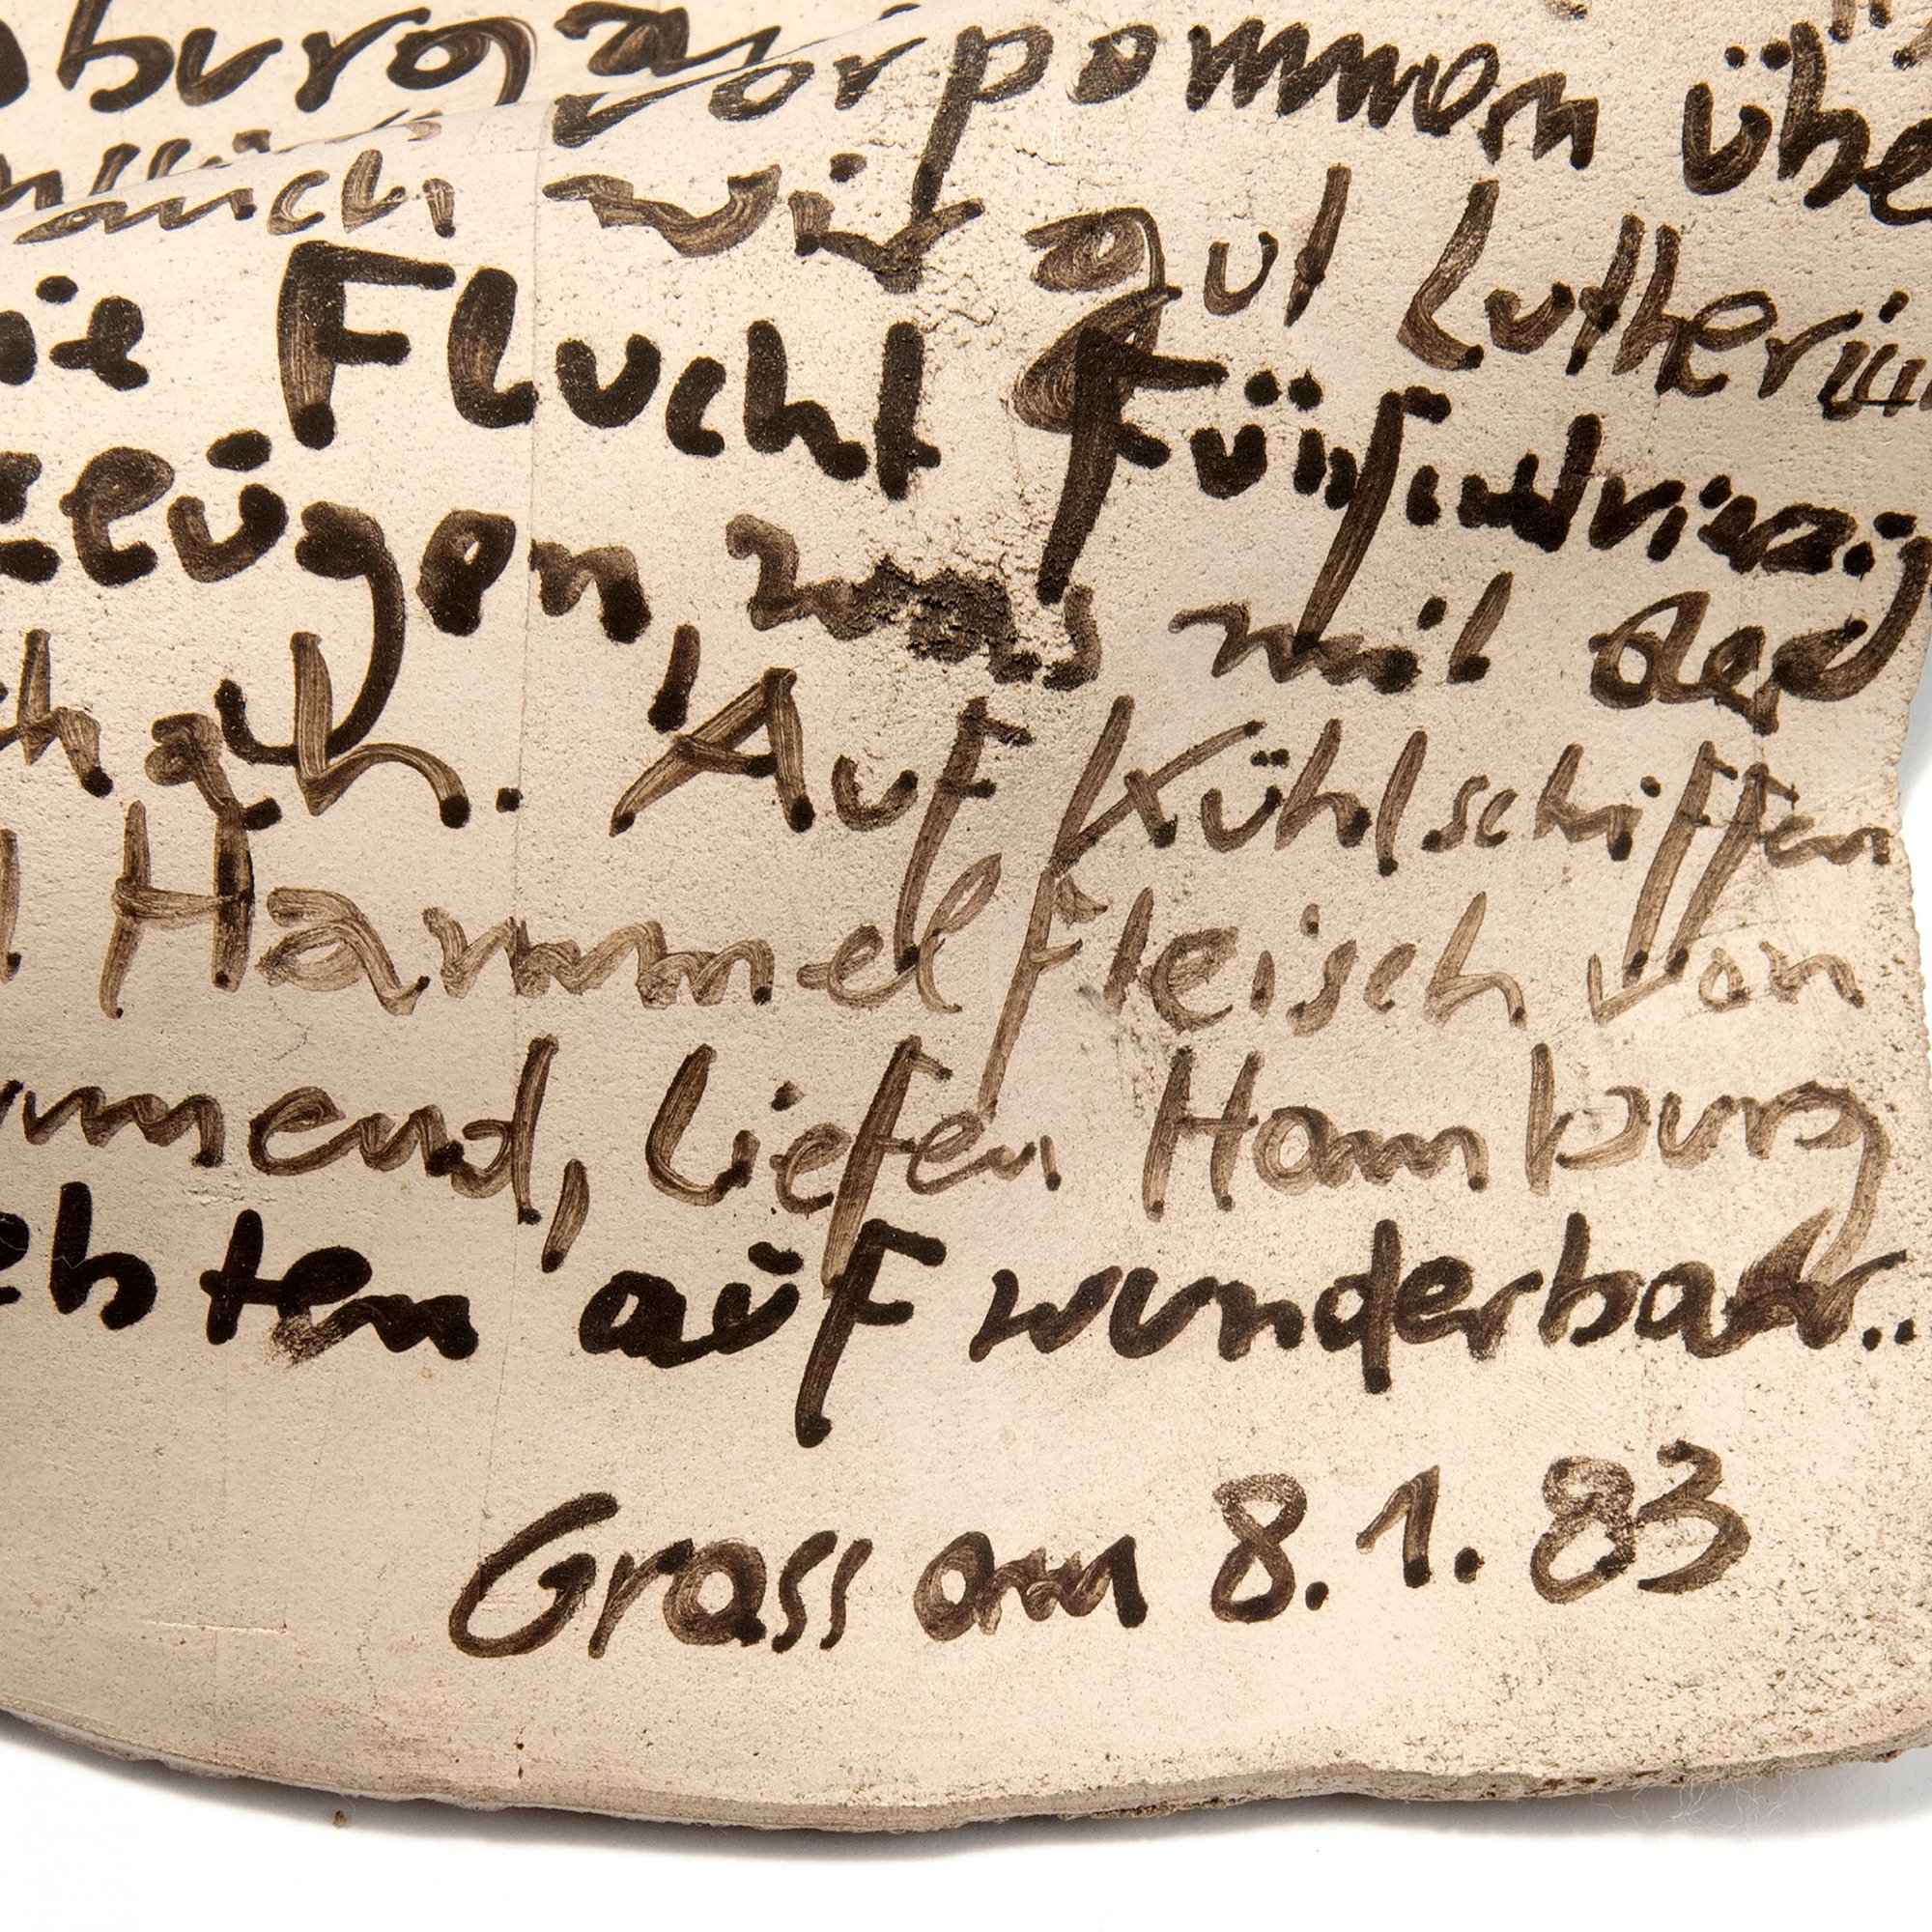 burg
Vorpommen übe
auch wir auf Lutheri
ie Flucht fünfundvierzig
zeügen, was mit der
h ah. Auf Kühlschiffen
Hammelfleisch von
mmend, liefen Hamburg
ebten aüf wunderbar..
Grass am 8.1.83